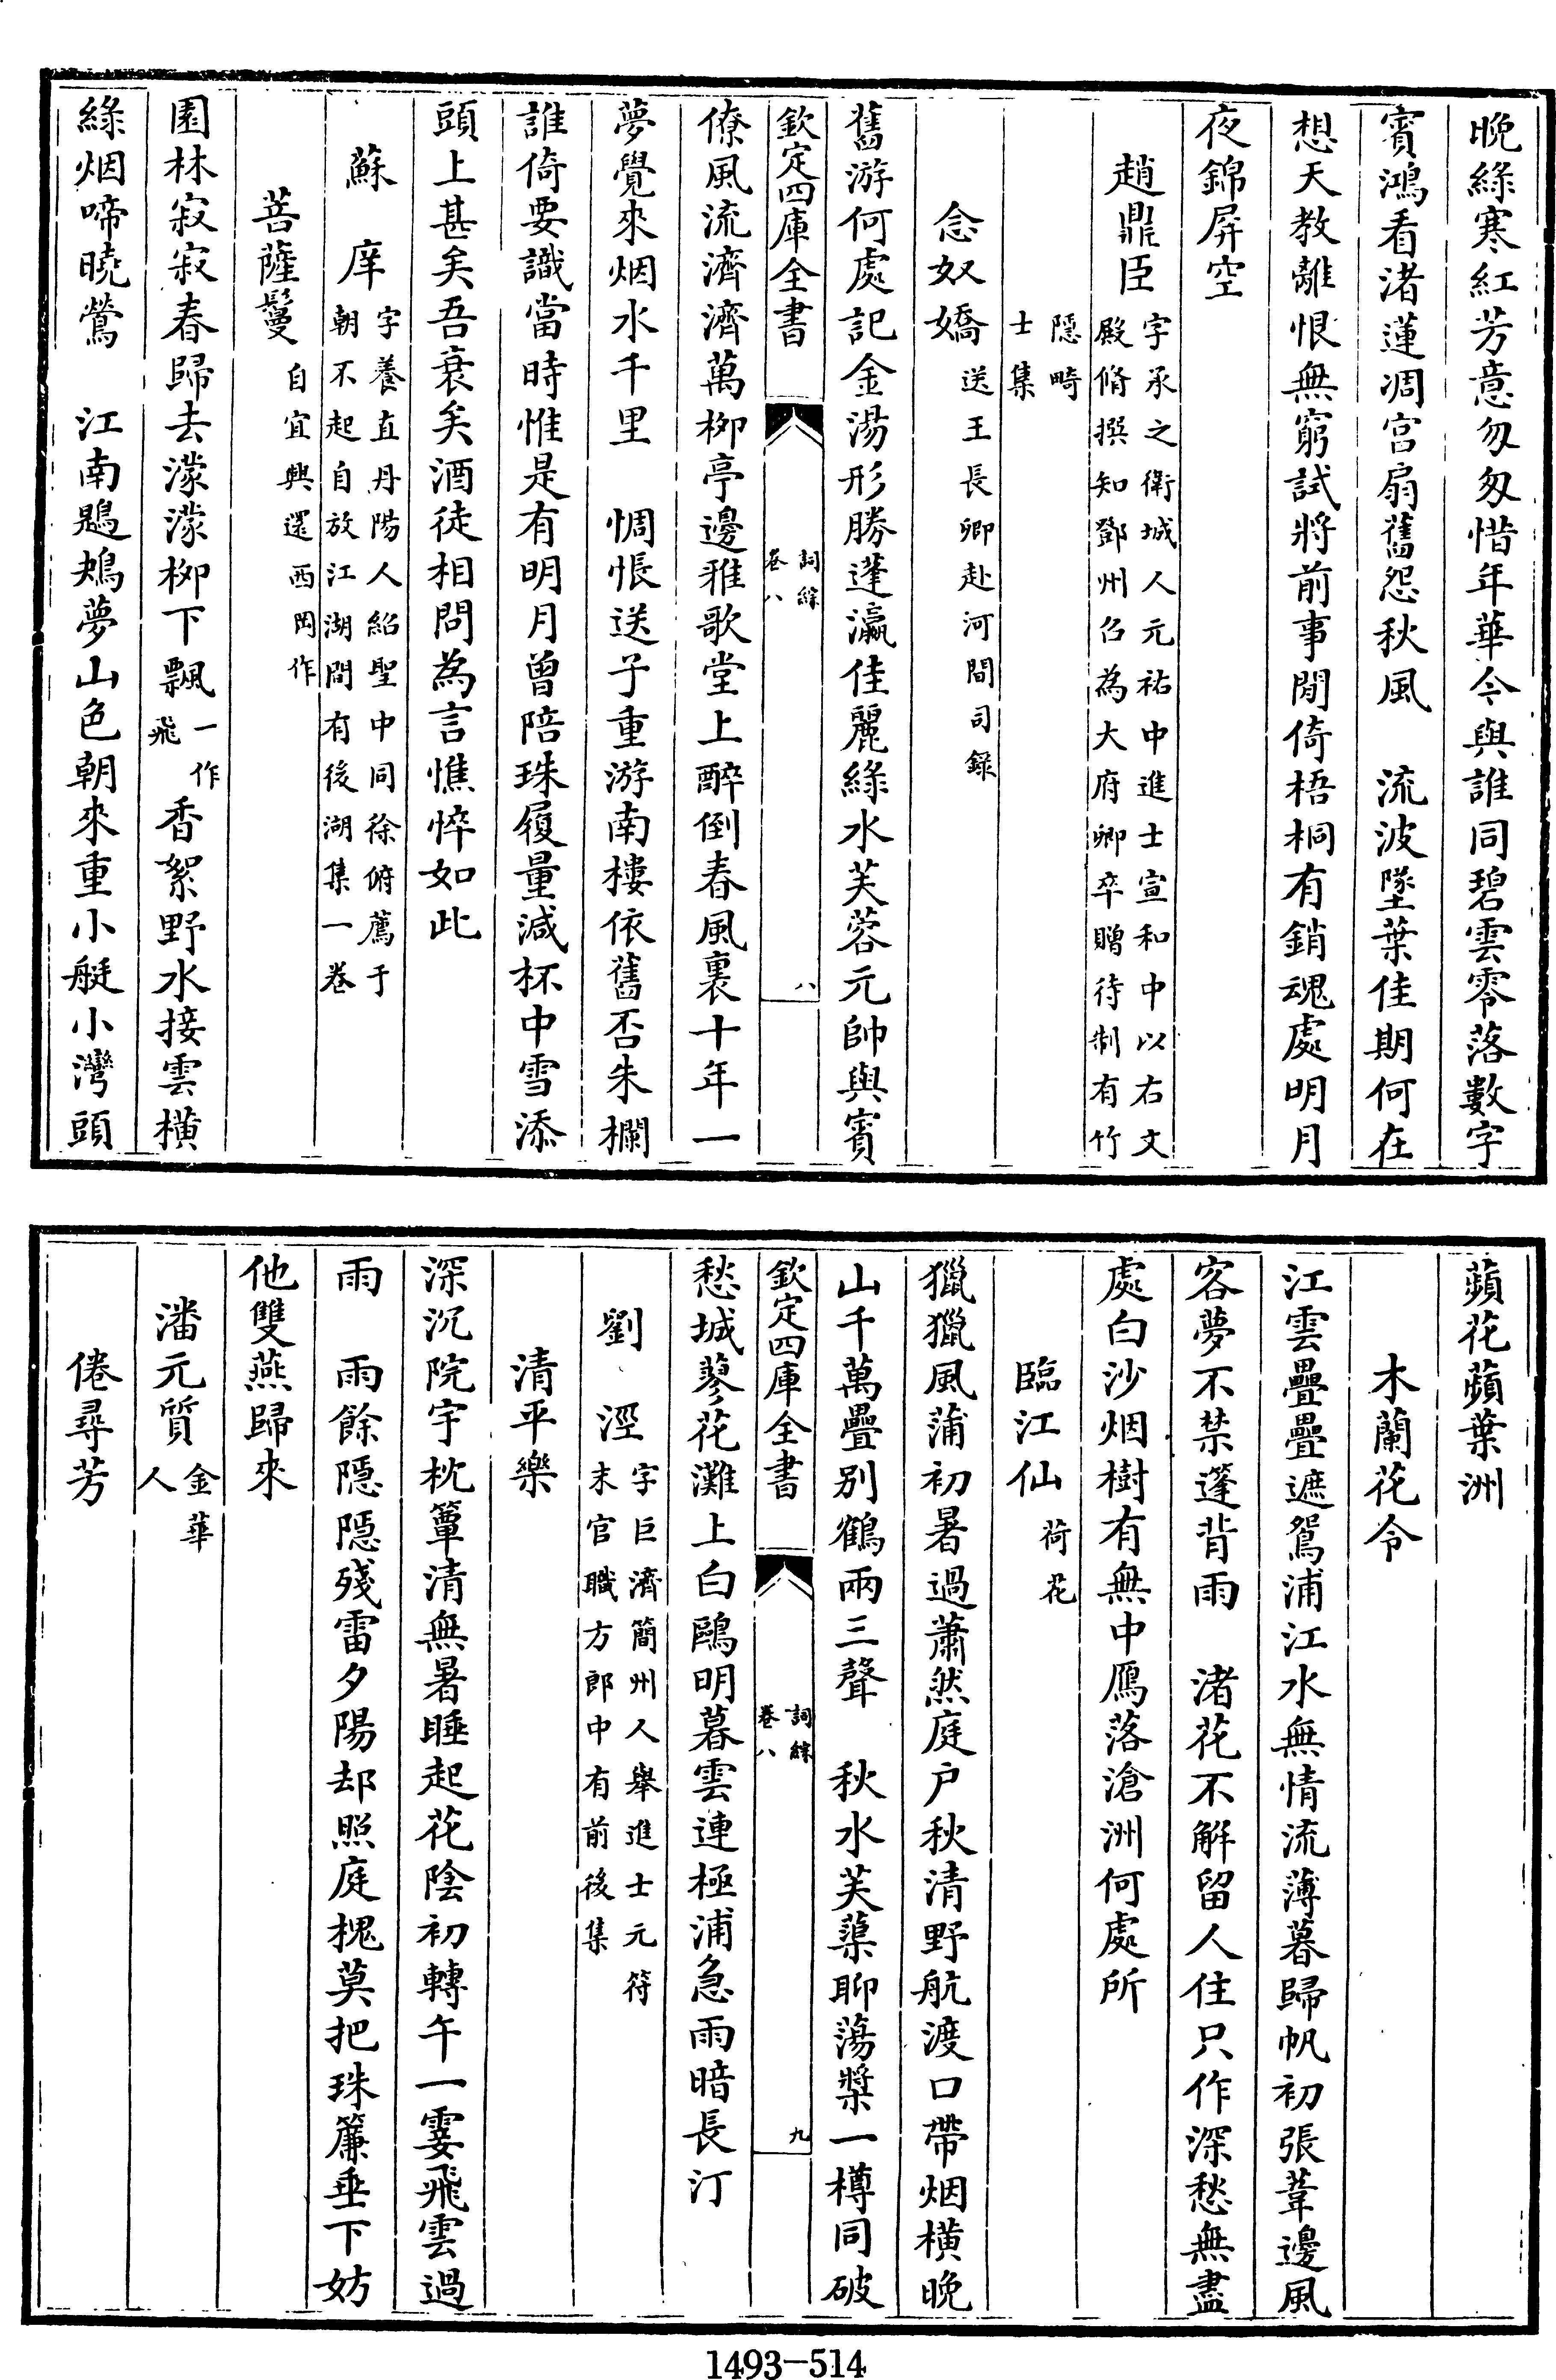 晚綠寒紅芳意匆匆惜年華今與誰同碧雲零落數字
賓鴻看渚蓮凋宫扇舊怨秋風　流波墜葉佳期何在
想天教離恨無窮試將前事閒倚梧桐有銷魂處明月
夜錦屏空
趙鼎臣字承之衛城人元祐中進士宣和中以右文
殿脩撰知鄧州召為大府卿卒贈待制有竹
隱畸
士集
念奴嬌送王長卿赴河間司錄
舊游何處記金湯形勝蓬瀛佳麗綠水芙蓉元帥與賓
欽定四庫全書
詞綜
卷八
八
僚風流濟濟萬柳亭邊雅歌堂上醉倒春風裏十年一
夢覺來烟水千里　惆悵送子重游南樓依舊否朱欄
誰倚要識當時惟是有明月曾陪珠履量減杯中雪添
頭上甚矣吾衰矣酒徒相問為言憔悴如此
蘇　庠字養直丹陽人紹聖中同徐俯薦于
朝不起自放江湖間有後湖集一卷
菩薩鬘自宜興還西岡作
園林寂寂春歸去濛濛柳下飄一作
飛香絮野水接雲橫
綠烟啼曉鶯　江南鶗鴂夢山色朝來重小艇小灣頭
蘋花蘋葉洲
木蘭花令
江雲疊疊遮鴛浦江水無情流薄暮歸帆初張葦邊風
客夢不禁篷背雨　渚花不解留人住只作深愁無盡
處白沙烟樹有無中鴈落滄洲何處所
臨江仙荷花
獵獵風蒲初暑過蕭然庭户秋清野航渡口帶烟橫晚
山千萬疊别鶴兩三聲　秋水芙蕖聊蕩槳一樽同破
欽定四庫全書
詞綜
卷八
九
愁城蓼花灘上白鷗明暮雲連極浦急雨暗長汀
劉　涇字巨濟簡州人舉進士元符
末官職方郎中有前後集
清平樂
深沉院宇枕簟清無暑睡起花陰初轉午一霎飛雲過
雨　雨餘隱隱殘雷夕陽却照庭槐莫把珠簾垂下妨
他雙燕歸來
潘元質金華
人
倦尋芳
1493—514